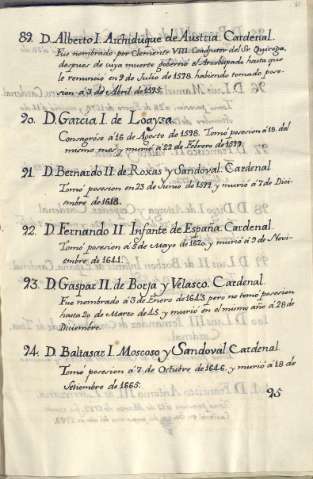 89. D. Alberto I. Archiduque de Austria. Cardenal.
Fue nombrado por Clemente VIII. Coadjutor del Sr. Quiroga,
despues de cuya muerte governó el Arzobispado hasta que
le renunció en 9 de Julio de 1598. habiendo tomado pose-
sion á 3 de Abril de 1595.
90. D. Garcia I. de Loaysa.
Consagróse á 16 de Agosto de 1598. Tomó posesion á 18. del
mismo mes y murió á 22 de Febrero de 1599.
91 D. Bernardo II. de Roxas y Sandoval. Cardenal
Tomó posesion en 23 de Junio de 1599. y murió á 7 de Dici-
embre de 1618.
92. D. Fernando II Infante de España. Cardenal
Tomó posesion á 8 de Mayo de 1620. y murió á 9 de Novi-
embre de 1641.
93. D. Gaspar II. de Borja y Velasco. Cardenal.
Fue nombrado á 3 de Enero de 1643. pero no tomó posesion
hasta 20 de Marzo de 45. y murió en el mismo año á 28 de
Diciembre.
94. D. Baltasar I. Moscoso y Sandoval Cardenal.
Tomó posesion á 7 de Octubre de 1646. y murió á 18 de
Setiembre de 1665.
95